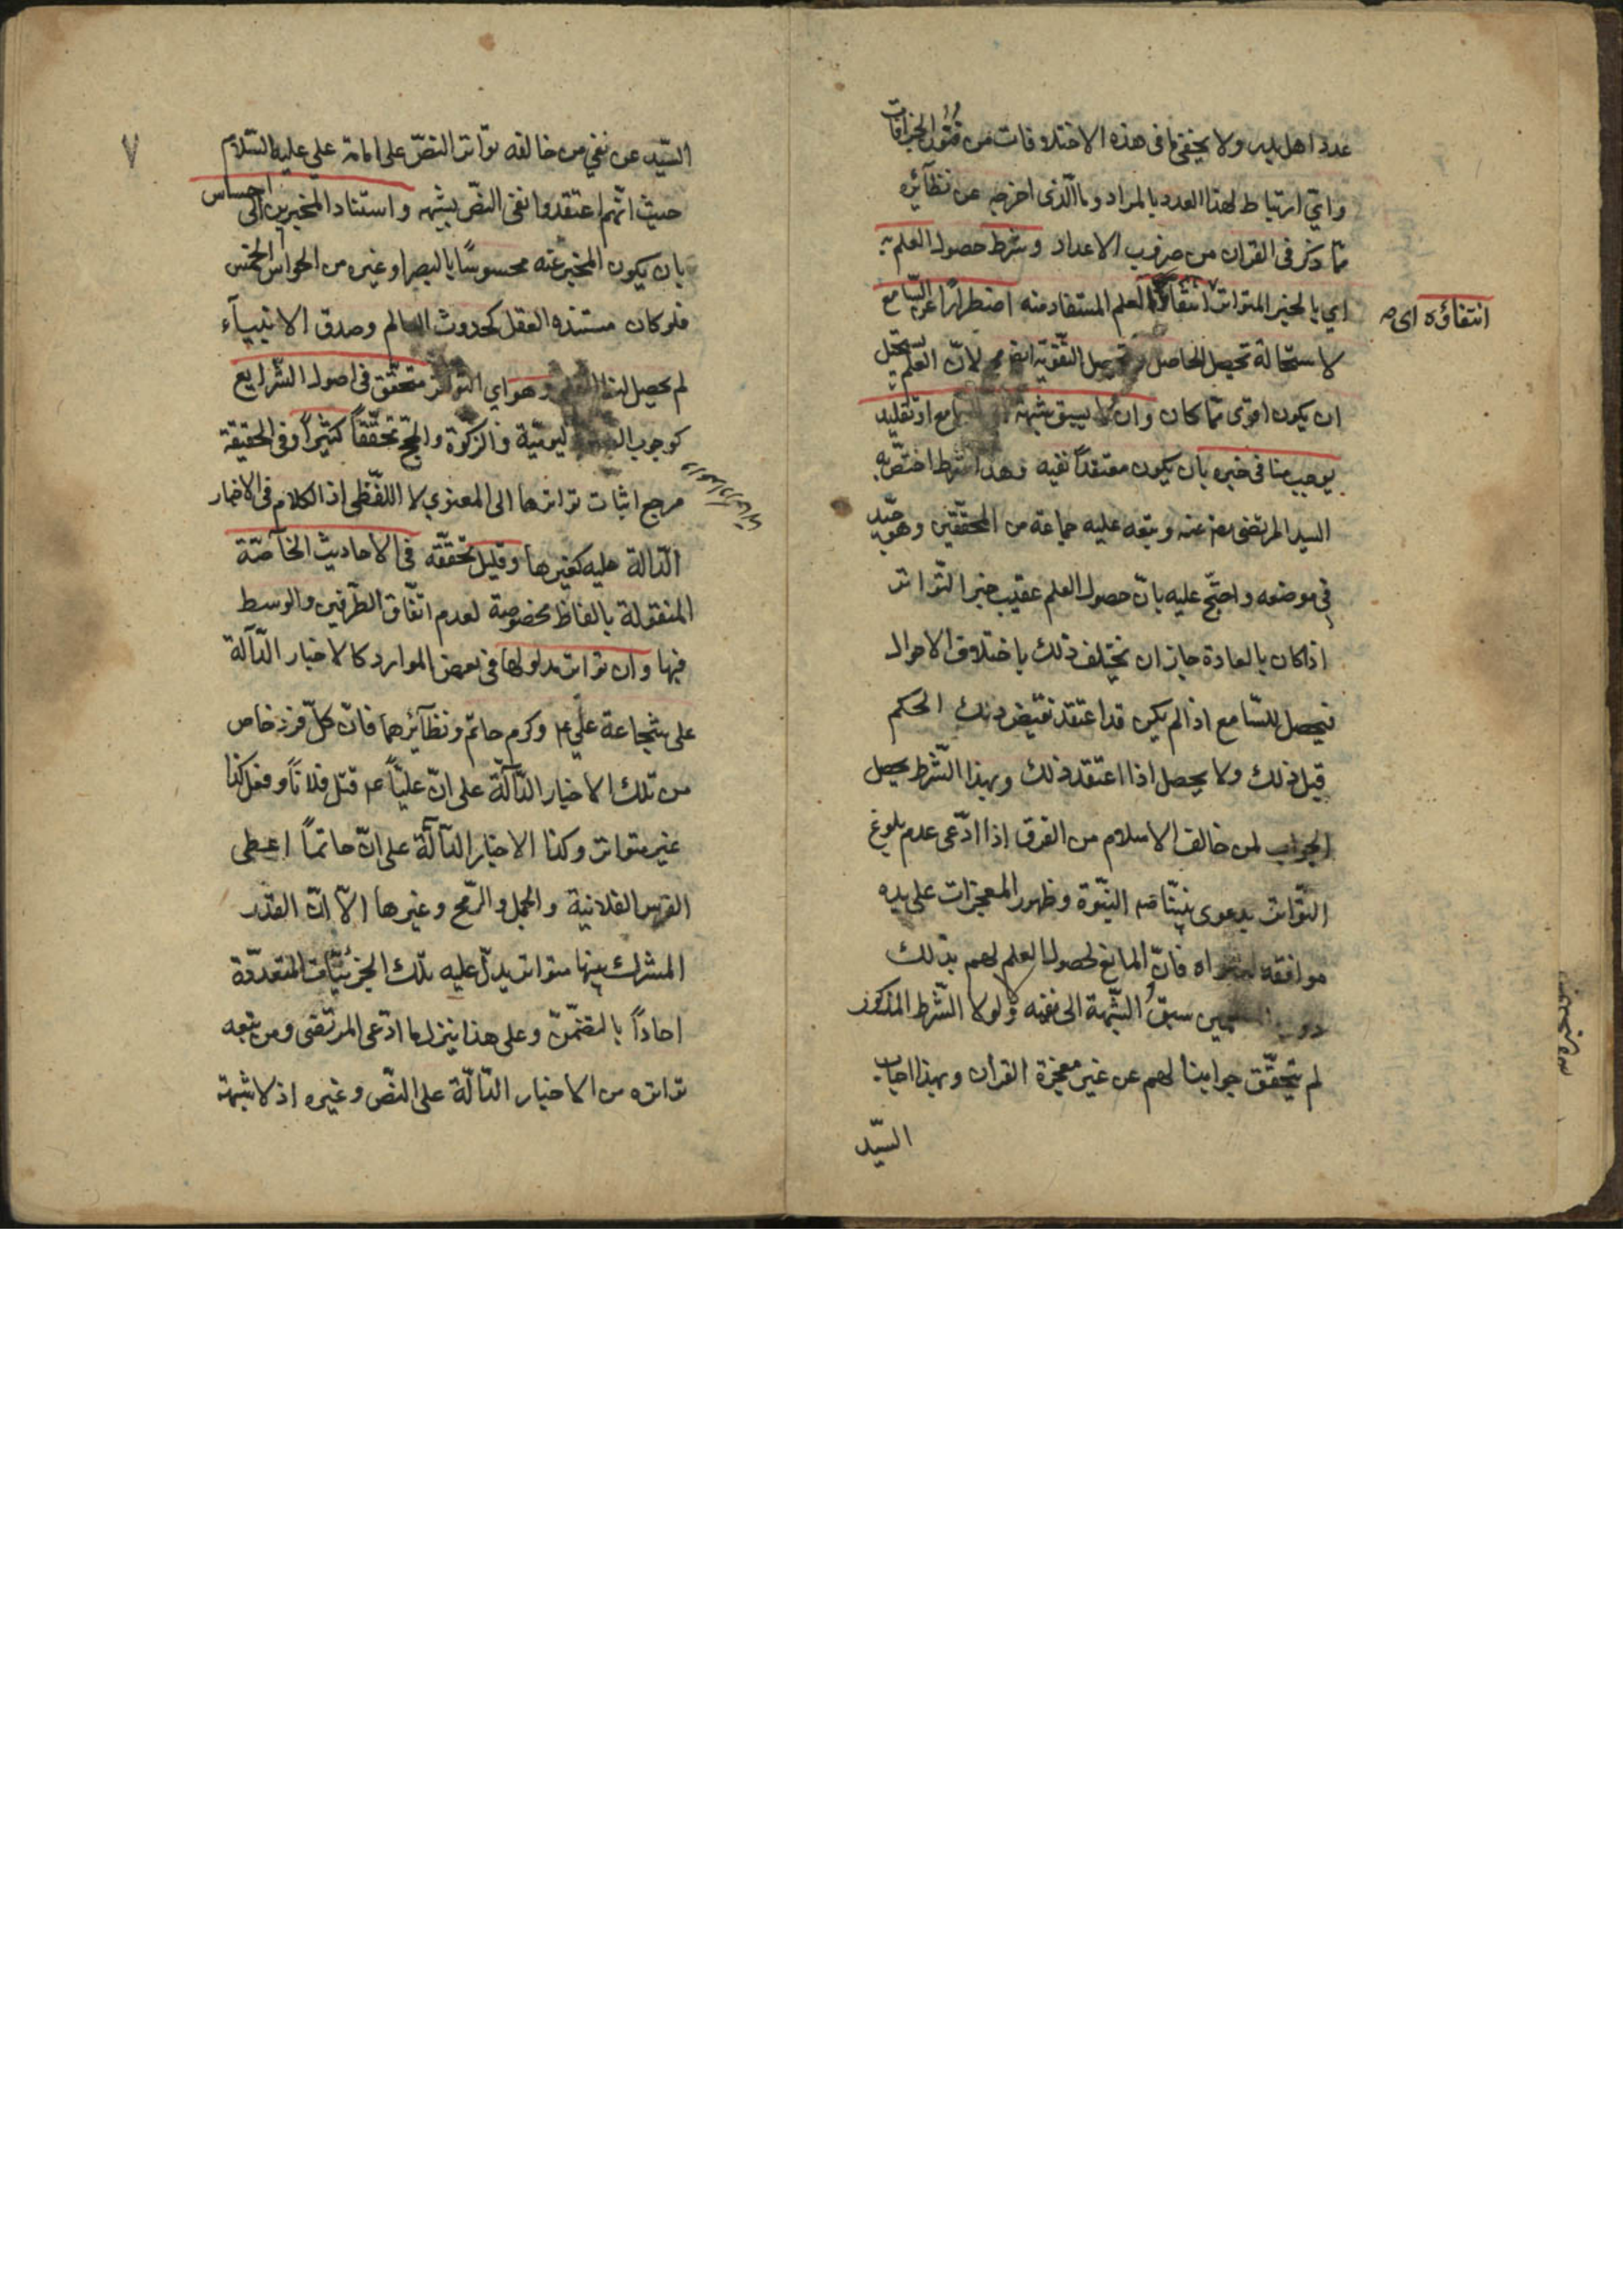 عدد اهل بدر ولا يخفى ما فى هذه الاختلافات من فنون الجزافات
واي ارتباط لهذا العدد بالمراد وما الذى اخرجه عن نظائره
مما ذكر فى القران من ضروب الاعداد وشرط حصول العلم به
اي بالخبر المتواتر انتفاؤه اى العلم المستفاد منه اضطرارا عن السامع
انتفاؤه اى صه
لاستحالة تحصيل الحاصل وتحصيل التقوية ايضا مح لان العلم يستحيل
ان يكون اقوى مما كان وان لا يسبق شبهة السامع او تقليد
يوجب منافى خبره بان يكون معتقدا نفيه وهذا الشرط اختص به
السيد المرتضى رضى عنه وتبعه عليه جماعة من المحققين وهو جيد
فى موضعه واحتج عليه بان حصول العلم عقيب خبر التواتر
اذا كان بالعادة جاز ان يختلف ذلك باختلاف الاحوال
فيحصل للسامع اذا لم يكن قد اعتقد نقيض ذلك الحكم
قبل ذلك ولا يحصل اذا اعتقد ذلك وبهذا الشرط يحصل
الجواب لمن خالف الاسلام من الفرق اذا ادعى عدم بلوغ
التواتر بدعوى نبينا صه النبوة وظهور المعجزات على يده
موافقة لدعواه فان المانع لحصول العلم لهم بذلك
دون المسلمين سبق الشبهة الى نفيه ولولا الشرط المذكور
لم يتحقق جوابنا لهم عن غير معجزة القران وبهذا اجاب
السيد
٧
السيد عن نفي من خالفه تواتر النص على امامة علي عليه السلام
حيث انهم اعتقدوا نفى النص بشبهه واستناد المخبرين الى احساس
بان يكون المخبر عنه محسوسا بالبصر او غيره من الحواس الخمس
فلو كان مستنده العقل كحدوث العالم وصدق الانبياء
لم يحصل لنا العلم وهو اي التواتر متحقق فى اصول الشرايع
كوجوب الصلوة اليومية والزكوة والحج تحققا كثيرا وفى الحقيقة
مرجع اثبات تواترها الى المعنوي لا اللفظى اذ الكلام فى الاخبار
الدالة عليه كغيرها وقليل تحققه فى الاحاديث الخاصة
المنقولة بالفاظ مخصوصة لعدم اتفاق الطرفين والوسط
فيها وان تواتر مدلولها فى بعض الموارد كالاخبار الدالة
على شجاعة علي ع وكرم حاتم ونظائرهما فان كل فرد خاص
من تلك الاخبار الدالة على ان عليا ع قتل فلانا وفعل كذا
غير متواتر وكذا الاخبار الدالة على ان حاتما اعطى
الفرس الفلانية والجمل والرمح وغيرها الا ان القدر
المشترك بينها متواتر يدل عليه تلك الجزئيات المتعددة
احادا بالتضمن وعلى هذا ينزل ما ادعى المرتضى ومن تبعه
تواتره من الاخبار الدالة على النص وغيره اذ لا شبهة